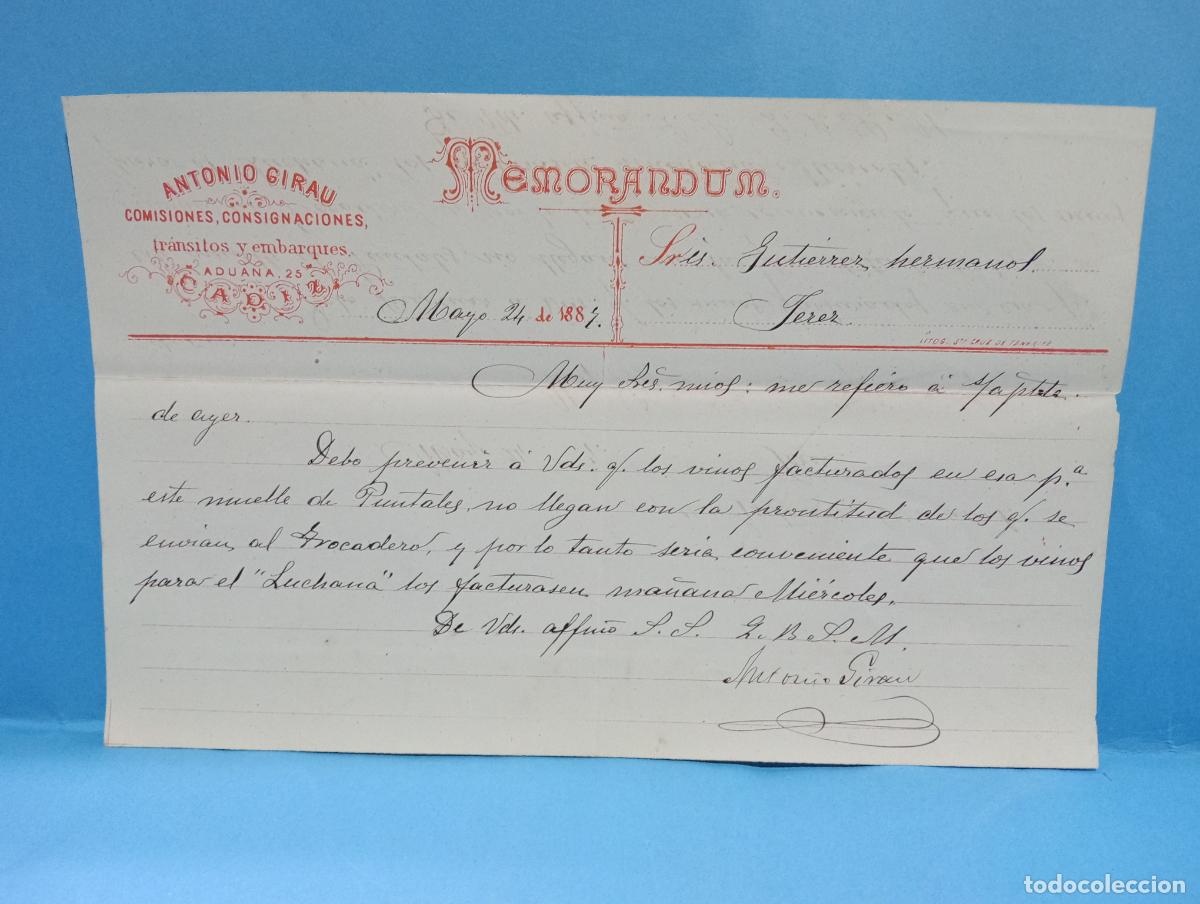 ANTONIO GIRAU
COMISIONES, CONSIGNACIONES,
tránsitos y embarques.
ADUANA, 25
CADIZ
MEMORANDUM.
Sres. Gutiérrez hermanos
Mayo 24 de 1887.
Jerez
LITOG. STA CRUZ DE TENERIFE
Muy Srés. mios: me refiero á
de ayer.
Debo prevenir á Vds. q. los vinos facturados en esa p.ª
este muelle de Puntales, no llegan con la prontitud de los q. se
envian al Trocadero, y por lo tanto seria conveniente que los vinos
para el "Luchana" los facturasen mañana Miércoles.
De Vds. affmo S. S. Q. B. S. M.
Antonio Girau
todocoleccion